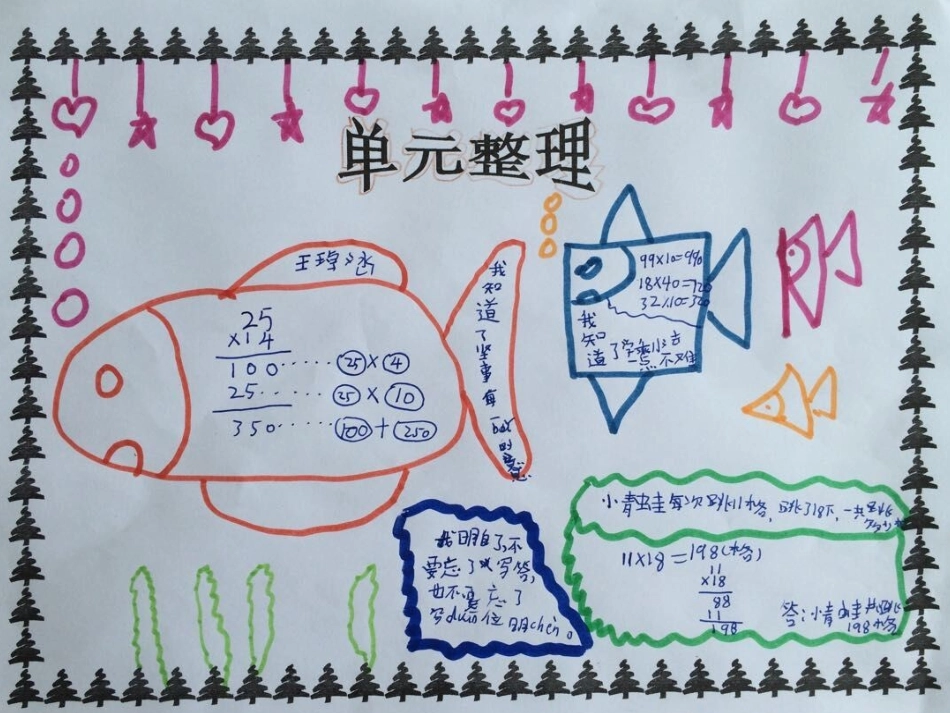 单元整理
王
25
×14
100······25×4
25·· ···25×10
350·····100+250
我知道了竖事每一bù的
99×10=990
18×40=720
32×10=320
我
知
道了学乘法
一点不难
小青蛙每次跳11格,跳了18下,一共跳
11×18=198(格)
11
×18
88
11
198
答:小青蛙共跳
198格
我明白了,不
要忘了以写答,
也不要忘了
写dān位明chēn。